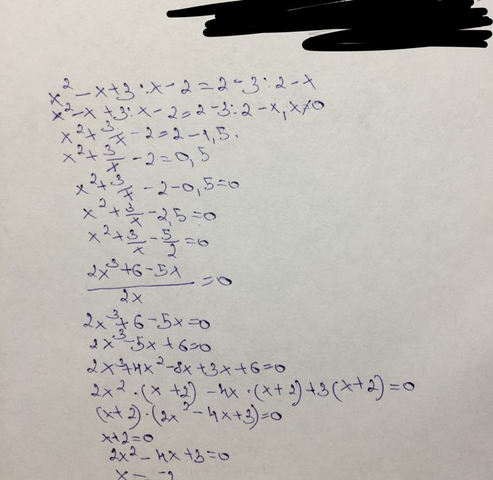 x² - x + 3 : x - 2 = 2 - 3 : 2 - x
x² - x + 3 : x - 2 = 2 - 3 : 2 - x, x ≠ 0
x² + 3/x - 2 = 2 - 1,5.
x² + 3/x - 2 = 0,5
x² + 3/x - 2 - 0,5 = 0
x² + 3/x - 2,5 = 0
x² + 3/x - 5/2 = 0
(2x³ + 6 - 5x)/(2x) = 0
2x³ + 6 - 5x = 0
2x³ - 5x + 6 = 0
2x³ + 4x² - 8x + 3x + 6 = 0
2x² · (x + 2) - 4x · (x + 2) + 3(x + 2) = 0
(x + 2) · (2x² - 4x + 3) = 0
x + 2 = 0
2x² - 4x + 3 = 0
x = -2